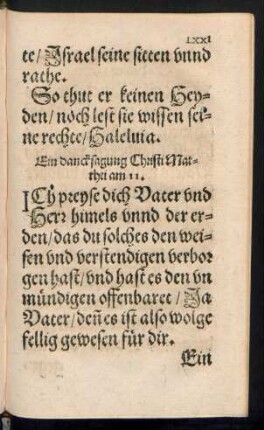 lxxi
te/Israel seine sitten vnnd
rathe.
So thut er keinen Hey-
den/noch lest sie wissen sei-
ne rechte/Haleluia.
Ein dancksagung Christi Mat-
thei am 11.
ICh preyse dich Vater vnd
Herr himels vnnd der er-
den/das du solches den wei-
sen vnd verstendigen verbor
gen hast/vnd hast es den vn
mündigen offenbaret/Ja
Vater/deñ es ist also wolge
fellig gewesen für dir.
Ein